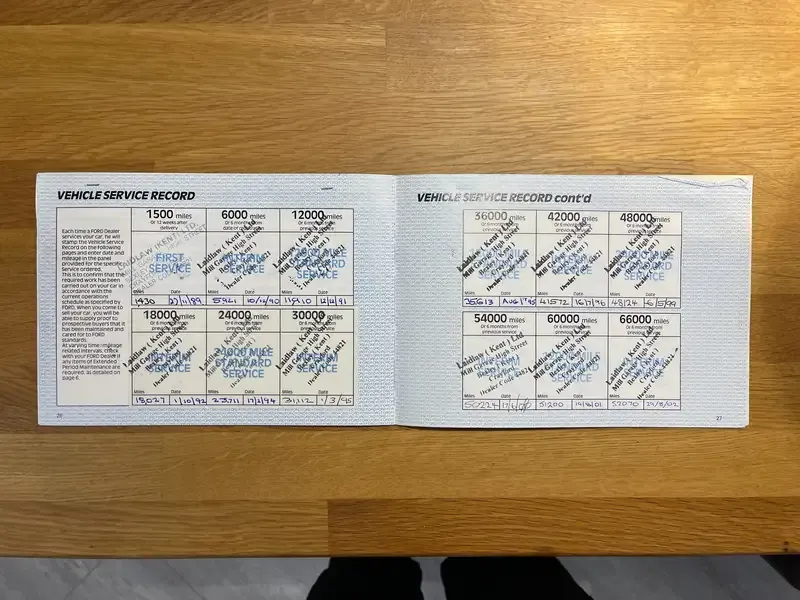 VEHICLE SERVICE RECORD
Each time a FORD Dealer
services your car, he will
stamp the Vehicle Service
Record on the following
pages and enter date and
mileage in the panel
provided for the specific
Service ordered.
This is to confirm that the
required work has been
carried out on your car in
accordance with the
current operations
schedule as specified by
FORD. When you come to
sell your car, you will be
able to supply proof to
prospective buyers that it
has been maintained and
cared for to FORD
standards.
At varying time/mileage
related intervals, check
with your FORD Dealer if
any items of Extended
Period Maintenance are
required, as detailed on
page 6.
1500 miles
Or 12 weeks after
delivery
LAIDLAW (KENT) LTD
FIRST
SERVICE
Miles Date
1430
6000 miles
Or 6 months from
Laidlaw (Kent) Ltd
Mill Garage High Street
SERVICE
Miles Date
5921 10/12/90
12000 miles
Or 6 months from
previous service
Laidlaw (Kent) Ltd
Mill Garage High Street
SERVICE
Miles Date
18000 miles
Or 6 months from
previous service
SERVICE
Miles Date
18,027 1/10/92
24000 miles
Or 6 months from
previous service
24000 MILE
STANDARD
SERVICE
Miles Date
23,711 17/2/94
30000 miles
Or 6 months from
previous service
INTERIM
SERVICE
Miles Date
31,112 1/3/95
26
VEHICLE SERVICE RECORD cont'd
36000 miles
Or 6 months from
previous service
Laidlaw (Kent) Ltd
Mill Garage High Street
Miles Date
35613
42000 miles
Or 6 months from
previous service
Laidlaw (Kent) Ltd
Mill Garage High Street
Dealer Code 4821
Miles Date
41572 16/7/96
48000 miles
Or 6 months from
previous service
Laidlaw (Kent) Ltd
Mill Garage High Street
Dealer Code 4821
Miles Date
48124 6/5/99
54000 miles
Or 6 months from
previous service
Laidlaw (Kent) Ltd
Mill Garage High Street
Dealer Code 4821
Miles Date
50224
60000 miles
Or 6 months from
previous service
Laidlaw (Kent) Ltd
Mill Garage High Street
Dealer Code 4821
Miles Date
51200
66000 miles
Or 6 months from
previous service
Laidlaw (Kent) Ltd
Mill Garage High Street
Dealer Code 4821
Miles Date
52070
27